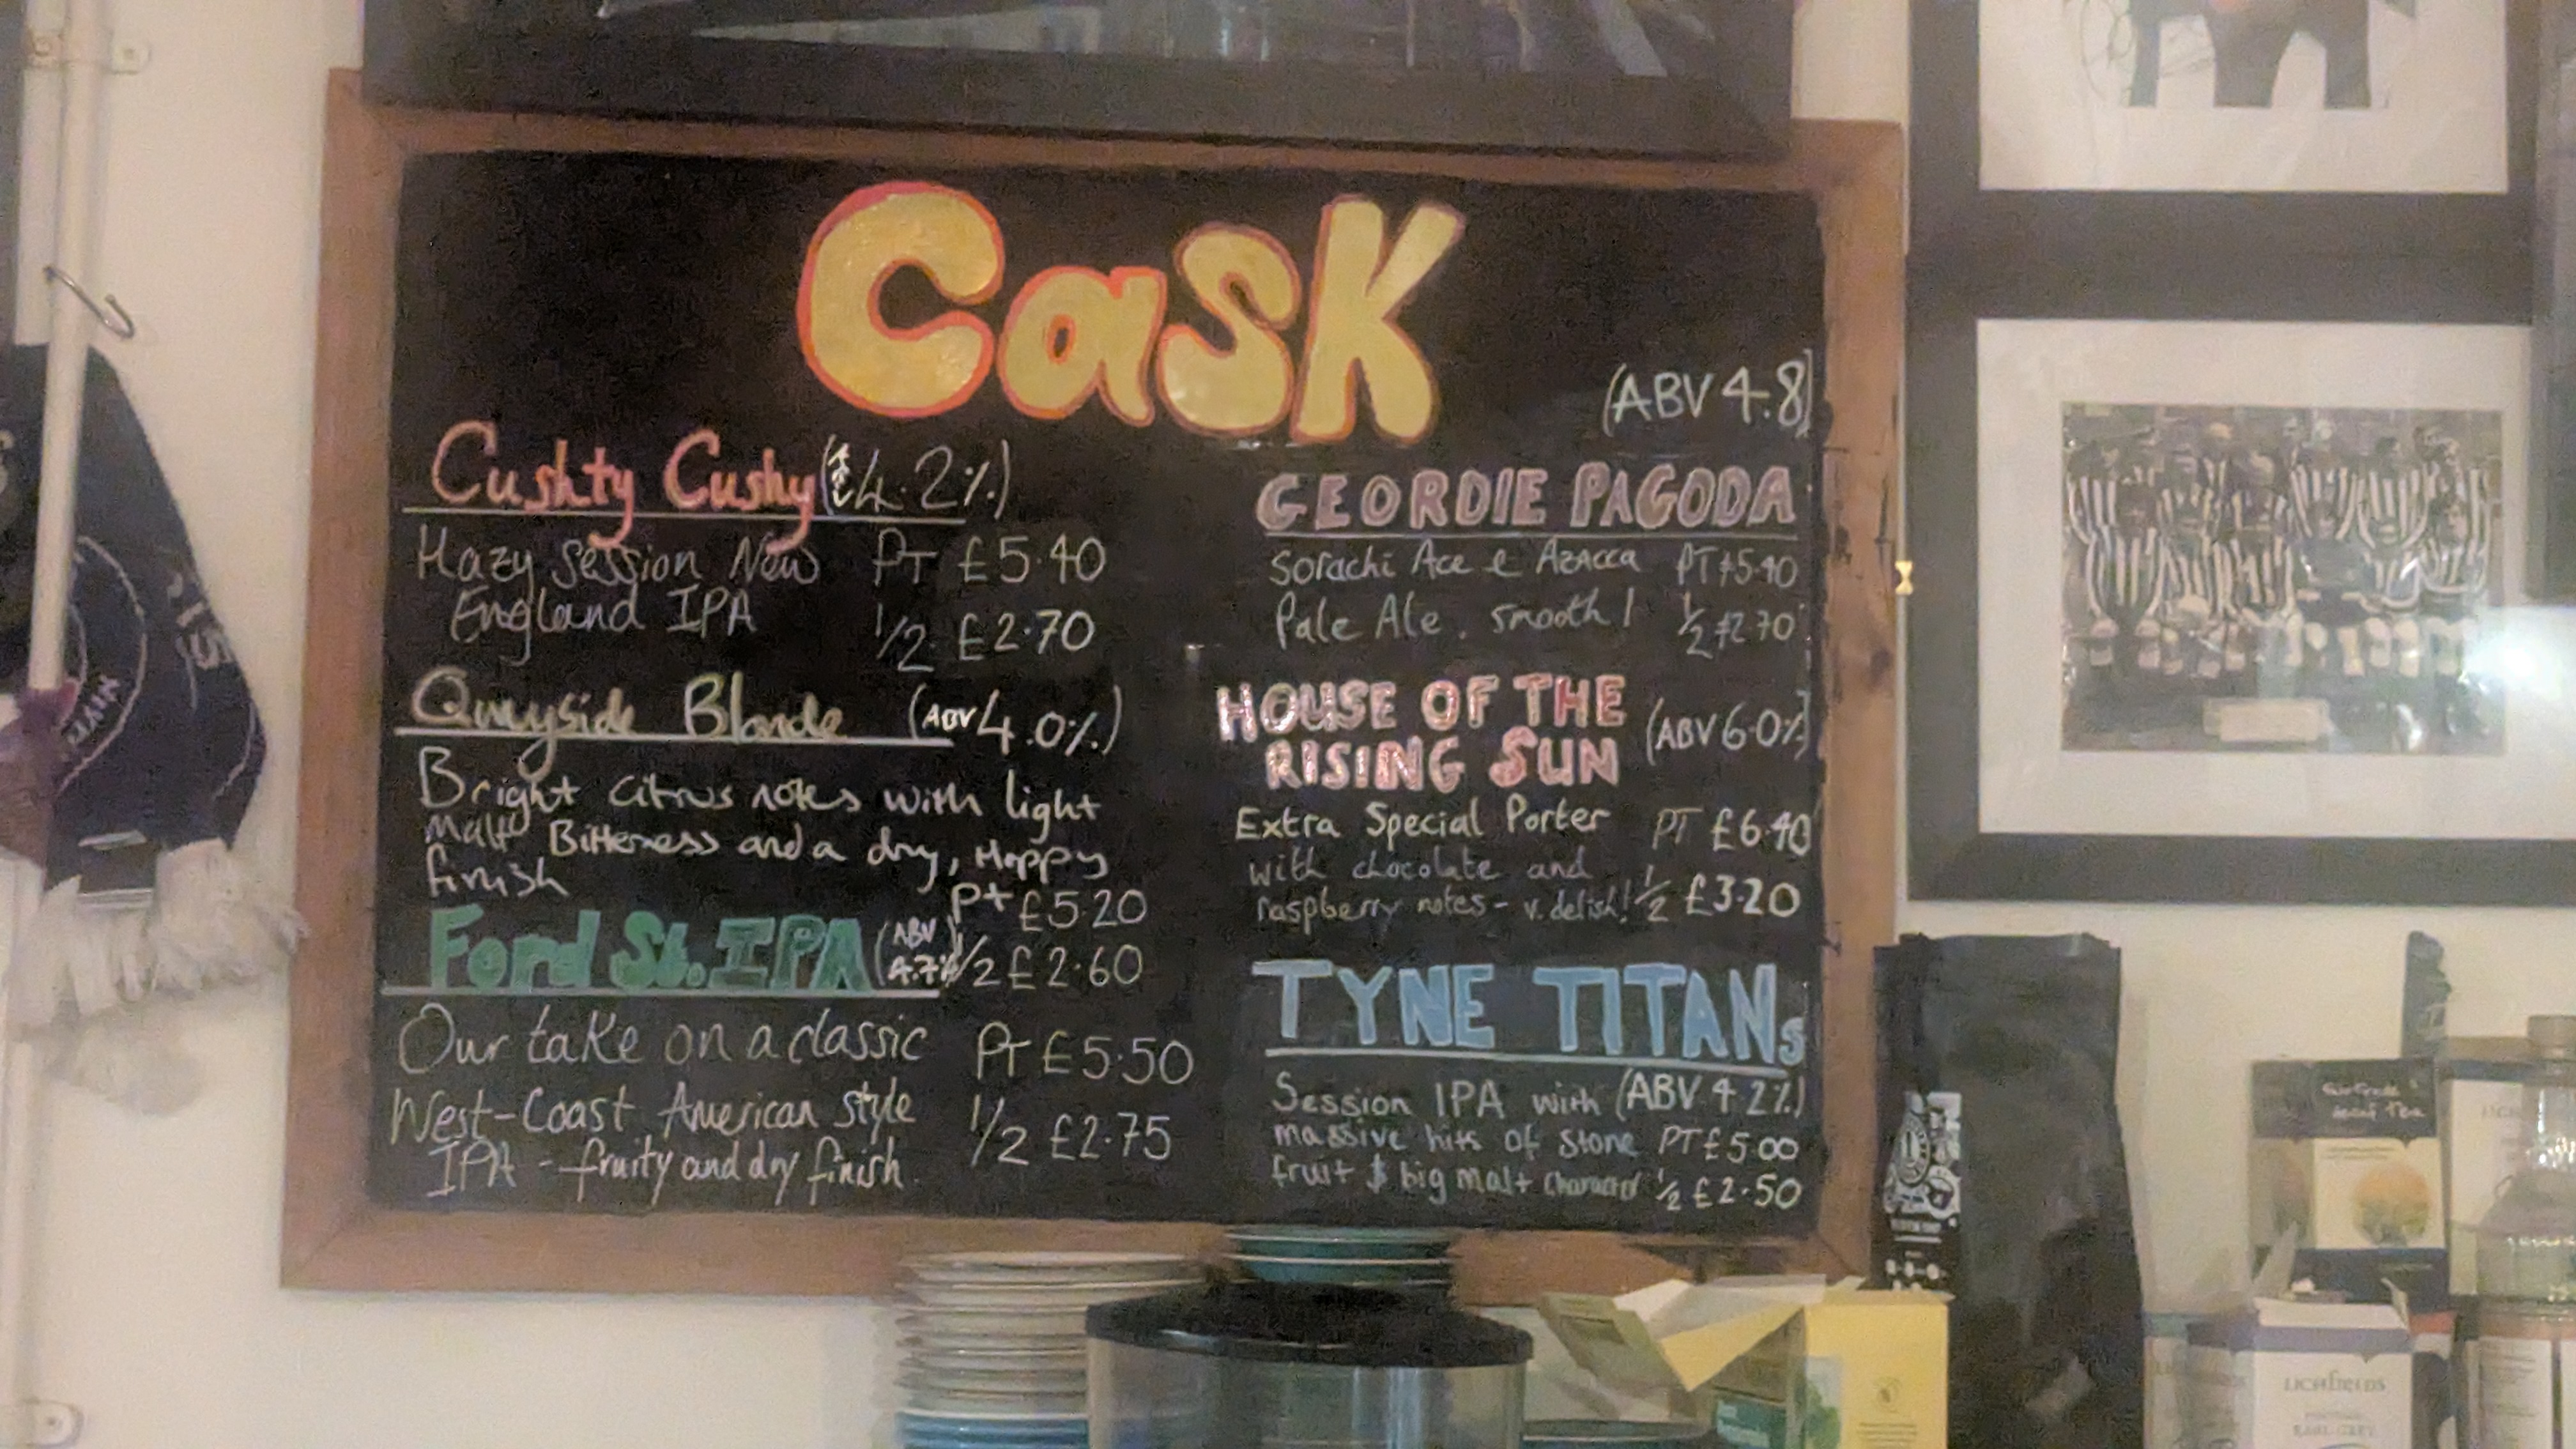 Cask
Cushty Cushy (ABV 4.2%)
Hazy Session New PT £5.40
England IPA 1/2 £2.70
Quayside Blonde (ABV 4.0%)
Bright citrus notes with light
malt Bitterness and a dry, Hoppy
finish
Pt £5.20
Ford St. IPA (ABV 4.7%) 1/2 £2.60
Our take on a classic PT £5.50
West-Coast American style
IPA - fruity and dry finish. 1/2 £2.75
(ABV 4.8)
GEORDIE PAGODA
Sorachi Ace & Azacca PT £5.40
Pale Ale. smooth! 1/2 £2.70
HOUSE OF THE
RISING SUN (ABV 6.0%)
Extra Special Porter PT £6.40
with chocolate and
raspberry notes - v. delish! 1/2 £3.20
TYNE TITANs
Session IPA with (ABV 4.2%)
massive hits of stone PT £5.00
fruit $ big malt character 1/2 £2.50
LICHFIELDS
EARL GREY